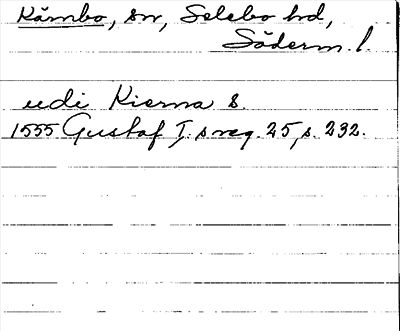 Kärnbo, sn, Selebo hd,
Söderm. l.
udi Kierna s.
1555 Gustaf I. s reg. 25, s. 232.